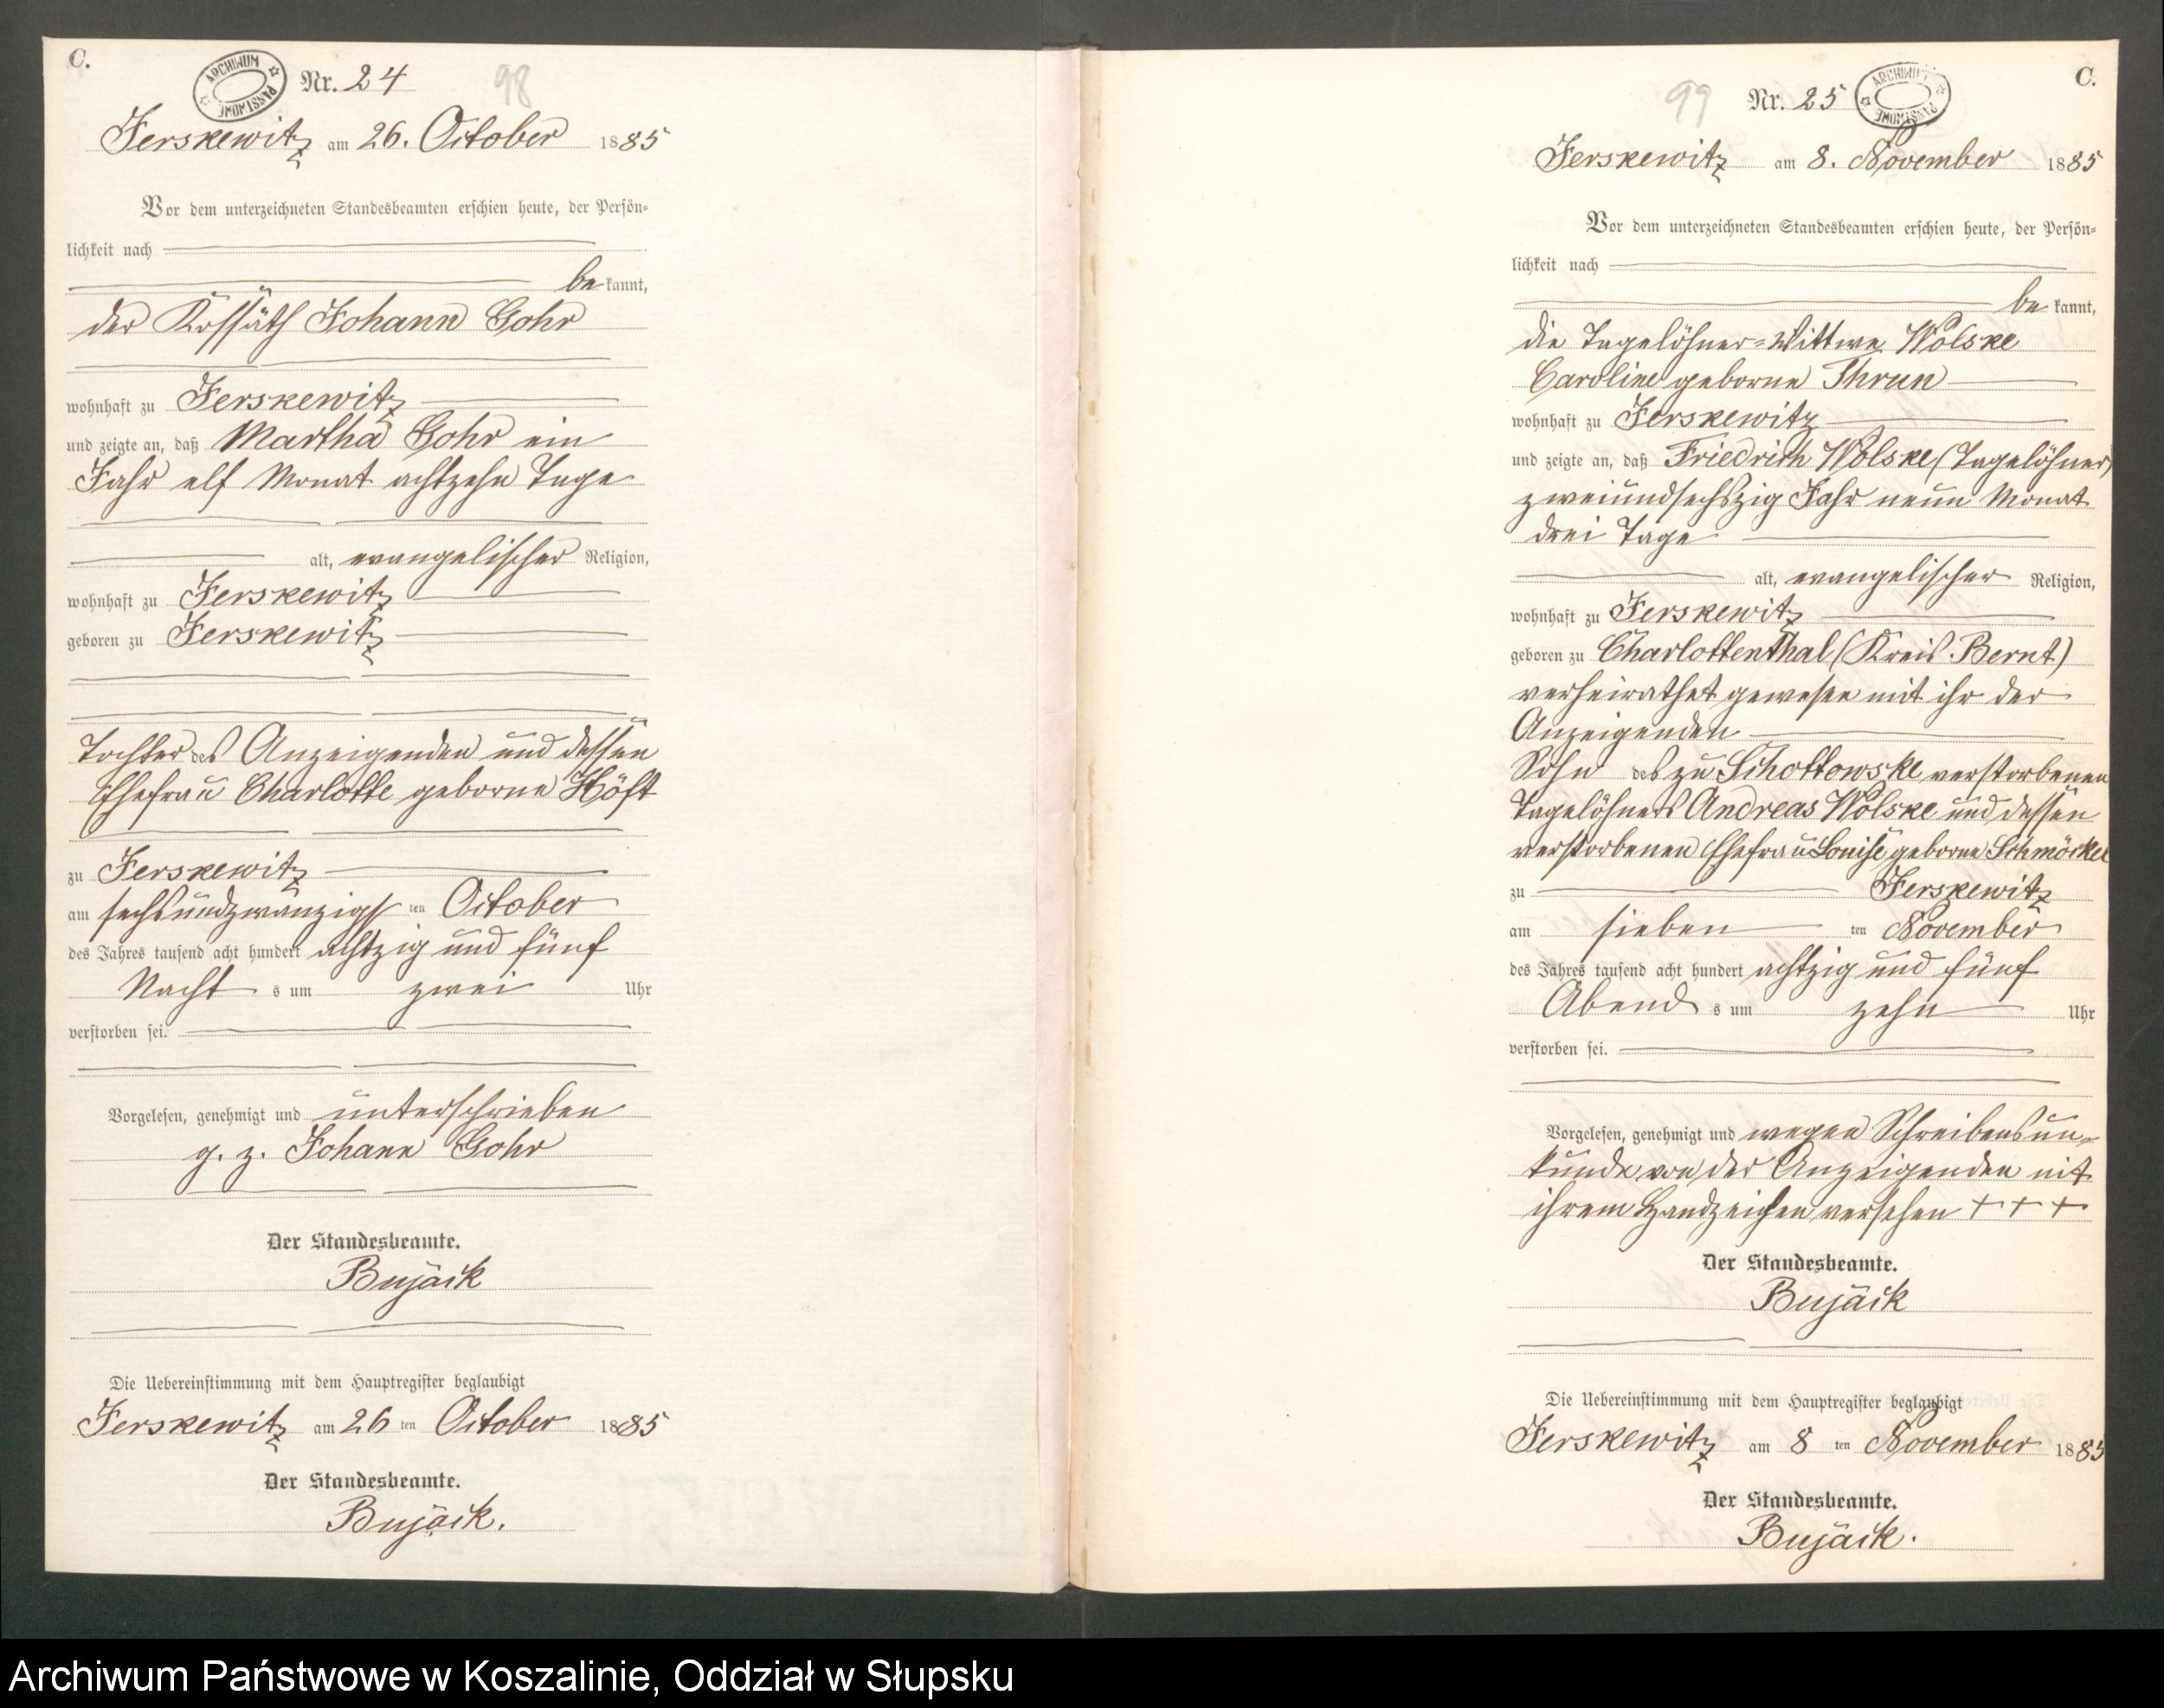 C.
ARCHIWUM PAŃSTWOWE
Nr. 24
98
Jerskewitz am 26. October 1885
Vor dem unterzeichneten Standesbeamten erschien heute, der Persön-
lichkeit nach
be kannt,
der Kossäth Johann Gohr
wohnhaft zu Jerskewitz
und zeigte an, daß Martha Gohr ein
Jahr elf Monat achtzehn Tage
alt, evangelischer Religion,
wohnhaft zu Jerskewitz
geboren zu Jerskewitz
Tochter des Anzeigenden und dessen
Ehefrau Charlotte geborne Höft
zu Jerskewitz
am sechsundzwanzigst ten October
des Jahres tausend acht hundert achtzig und fünf
Nacht s um zwei Uhr
verstorben sei.
Vorgelesen, genehmigt und unterschrieben
g. z. Johann Gohr
Der Standesbeamte.
Bujäck
Die Uebereinstimmung mit dem Hauptregister beglaubigt
Jerskewitz am 26 ten October 1885
Der Standesbeamte.
Bujäck.
C.
99
Nr. 25
ARCHIWUM PAŃSTWOWE
Jerskewitz am 8. November 1885
Vor dem unterzeichneten Standesbeamten erschien heute, der Persön-
lichkeit nach
be kannt,
die Tagelöhner-Wittwe Wolske
Caroline geborne Thrun
wohnhaft zu Jerskewitz
und zeigte an, daß Friedrich Wolske (Tagelöhner)
zweiundsechszig Jahr neun Monat
drei Tage
alt, evangelischer Religion,
wohnhaft zu Jerskewitz
geboren zu Charlottenthal (Kreis Bernt)
verheirathet gewesen mit ihr der
Anzeigenden
Sohn des zu Schottowske verstorbenen
Tagelöhners Andreas Wolske und dessen
verstorbenen Ehefrau Louise geborne Schmöckel
zu Jerskewitz
am sieben ten November
des Jahres tausend acht hundert achtzig und fünf
Abend s um zehn Uhr
verstorben sei.
Vorgelesen, genehmigt und wegen Schreibensun-
kunde von der Anzeigenden mit
ihrem Handzeichen versehen + + +
Der Standesbeamte.
Bujäck
Die Uebereinstimmung mit dem Hauptregister beglaubigt
Jerskewitz am 8 ten November 1885
Der Standesbeamte.
Bujäck.
Archiwum Państwowe w Koszalinie, Oddział w Słupsku